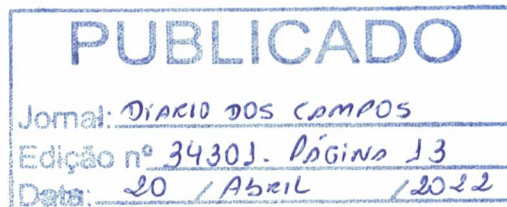 PUBLICADO
Jornal: DIARIO DOS CAMPOS
Edição nº 34301. PÁGINA 13
Data: 20 / ABRIL / 2022